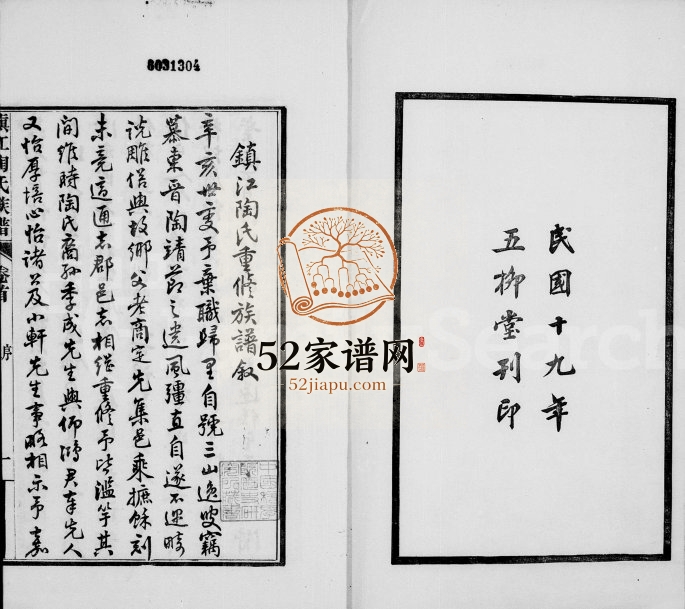 8031304
民國十九年
五柳堂刊印
鎮江陶氏重修族譜叙
辛亥世變予棄職歸里自號三山逸叟竊
慕東晉陶靖節之遺風彊直自遂不逐時
說雕倍與故鄉父老商定先集邑乘摭
未竟適通志郡邑志相繼重修予皆濫竽其
間維時陶氏裔孫季成先生與仰鴻君奉先人
又怡厚培心怡諸公及小軒先生事略相示予嘉
鎮江陶氏族譜 卷首 序 一
52家谱网
52jiapu.com